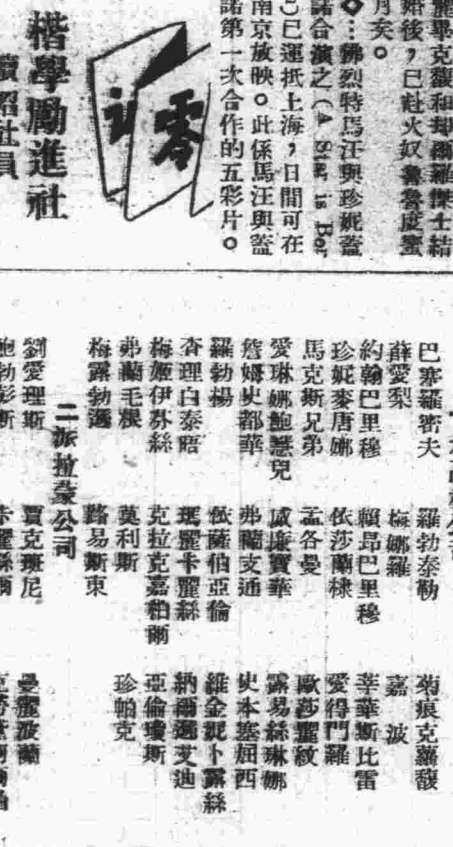 麗畢克馥和却爾羅傑士結
婚後，已赴火奴魯魯度蜜
月矣。
◇…弗烈特馬汪與珍妮蓋
諾合演之（A Star is Bor
）已運抵上海，日間可在
南京放映。此係馬汪與蓋
諾第一次合作的五彩片。
零
楷學勵進社
續招社員
巴塞羅密夫 羅勃泰勒 菊痕克蘿馥
薛愛梨 梅娜羅 嘉波
約翰巴里穆 賴昂巴里穆 莘華斯比雷
珍妮麥唐娜 依莎蘭棣 愛得門羅
馬克斯兄弟 孟各曼 歐莎麗紋
愛琳娜鮑慧兒 威廉寶華 露易絲琳娜
詹姆史都華 弗蘭支通 史本塞屈西
羅勃揚 依薩伯亞倫 維金妮卜露絲
杏理白泰晤 瑪麗卡麗絲 納爾遜艾迪
梅姬伊芬絲 克拉克嘉柏爾 亞倫瓊斯
弗蘭毛根 莫利斯 珍帕克
梅露勃邏 路易斯東
二派拉蒙公司
劉愛理斯 賈克班尼 曼麗波蘭